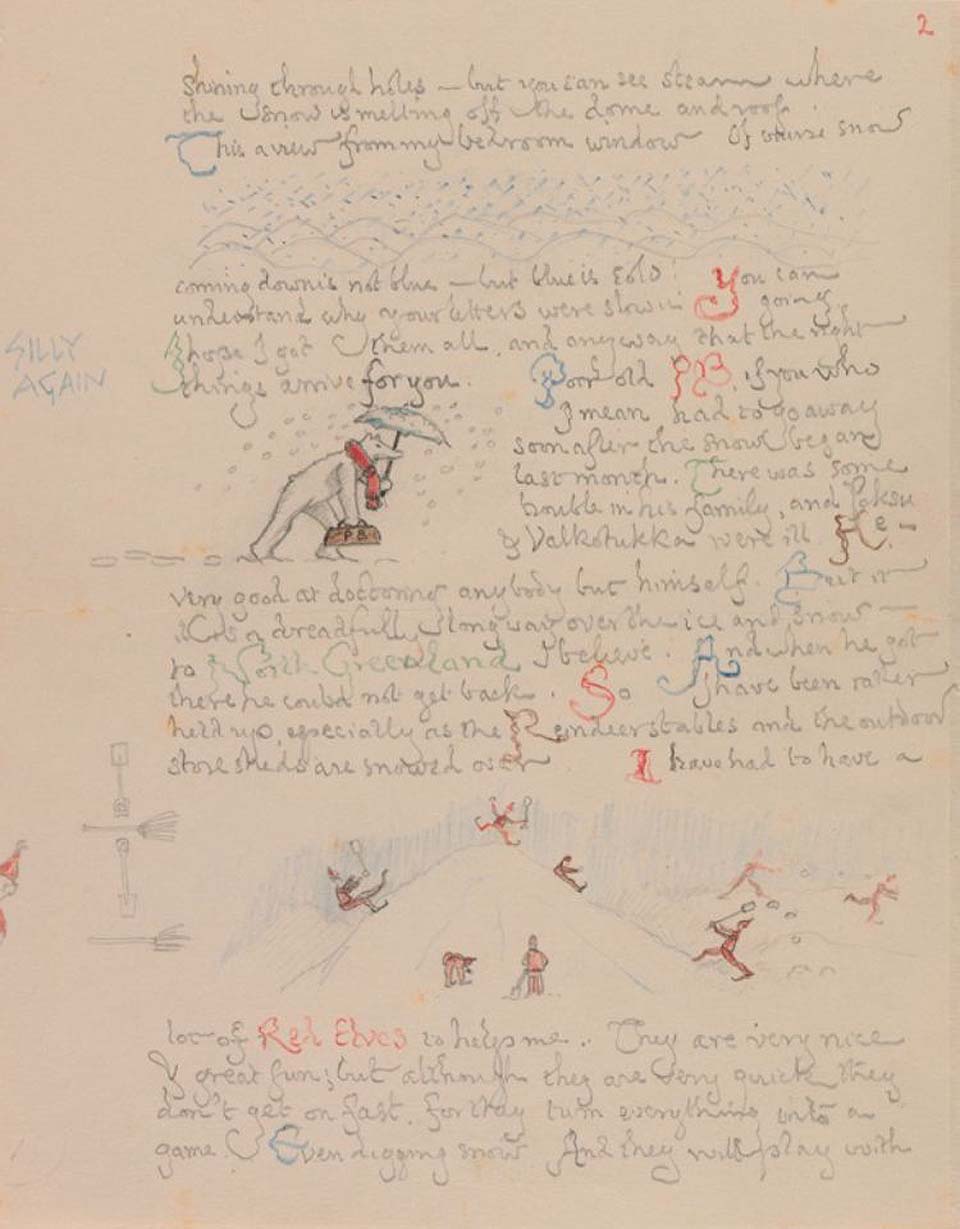 2
shining through holes — but you can see steam where
the snow is melting off the dome and roof.
This a view from my bedroom window Of course snow
coming down is not blue — but blue is cold! You can
understand why your letters were slow in going.
I hope I got them all, and anyway that the right
things arrive for you. Poor old PB, if you who
SILLY
AGAIN
I mean had to go away
soon after the snow began
last month. There was some
trouble in his family, and Paksu
& Valkotukka were ill. He—
very good at doctoring anybody but himself. But it
is a dreadfully long way over the ice and snow —
to North Greenland I believe. And when he got
there he could not get back. So I have been rather
held up, especially as the Reindeer stables and the outdoor
store sheds are snowed over I have had to have a
P.B.
lot of Red Elves to help me. They are very nice
& great fun; but although they are very quick they
don't get on fast. For they turn everything into a
game. Even digging snow And they will play with